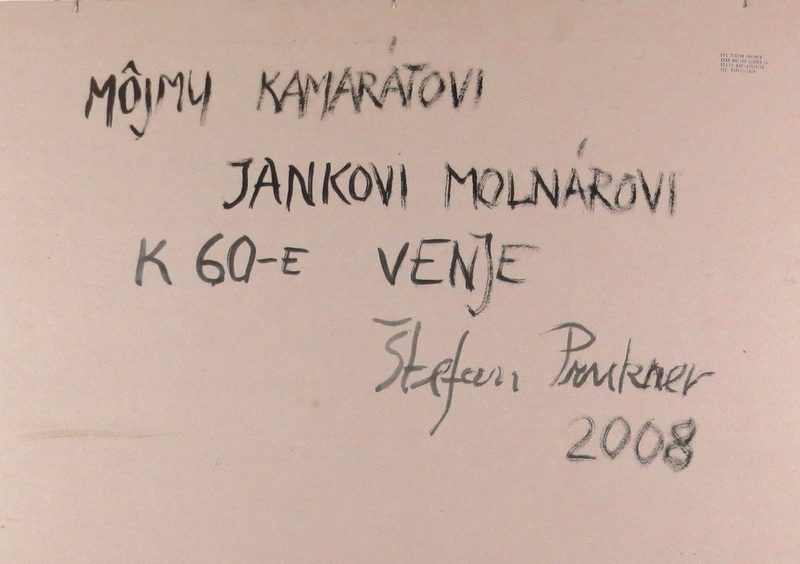 MÔJMU KAMARÁTOVI
JANKOVI MOLNÁROVI
K 60-E VENJE
Štefan Prukner
2008